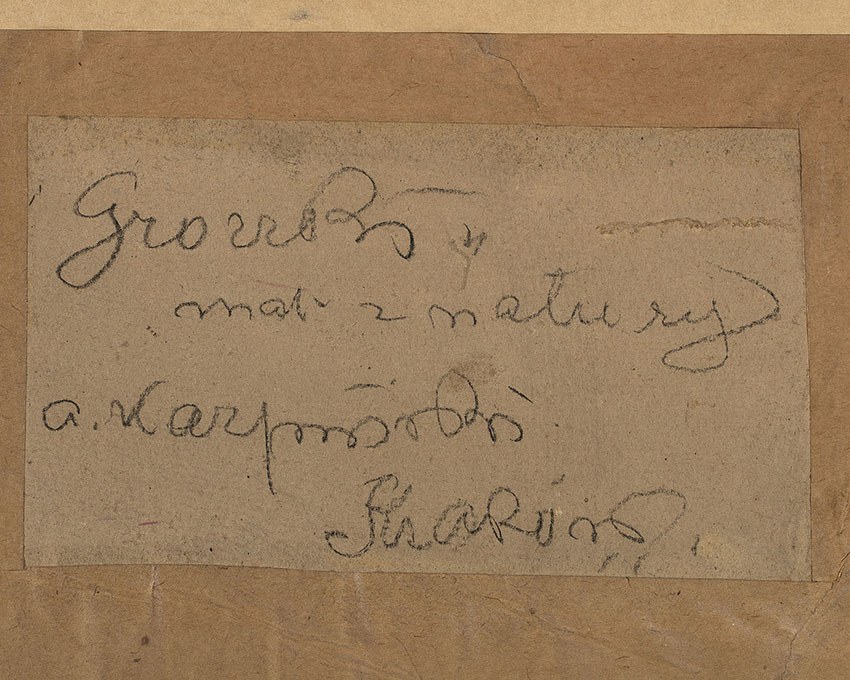 Groszki
mal. z natury
a. Karpiński
Kraków